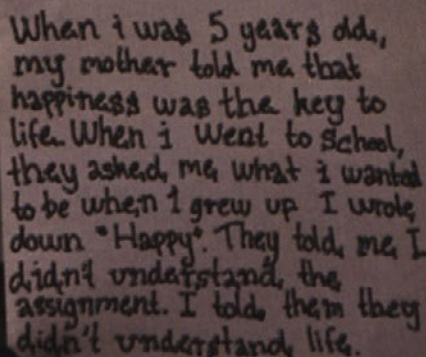 When i was 5 years old,
my mother told me that
happiness was the key to
life. When i went to school,
they asked me what i wanted
to be when I grew up I wrote
down "Happy". They told me I
didn't understand the
assignment. I told them they
didn't understand life.